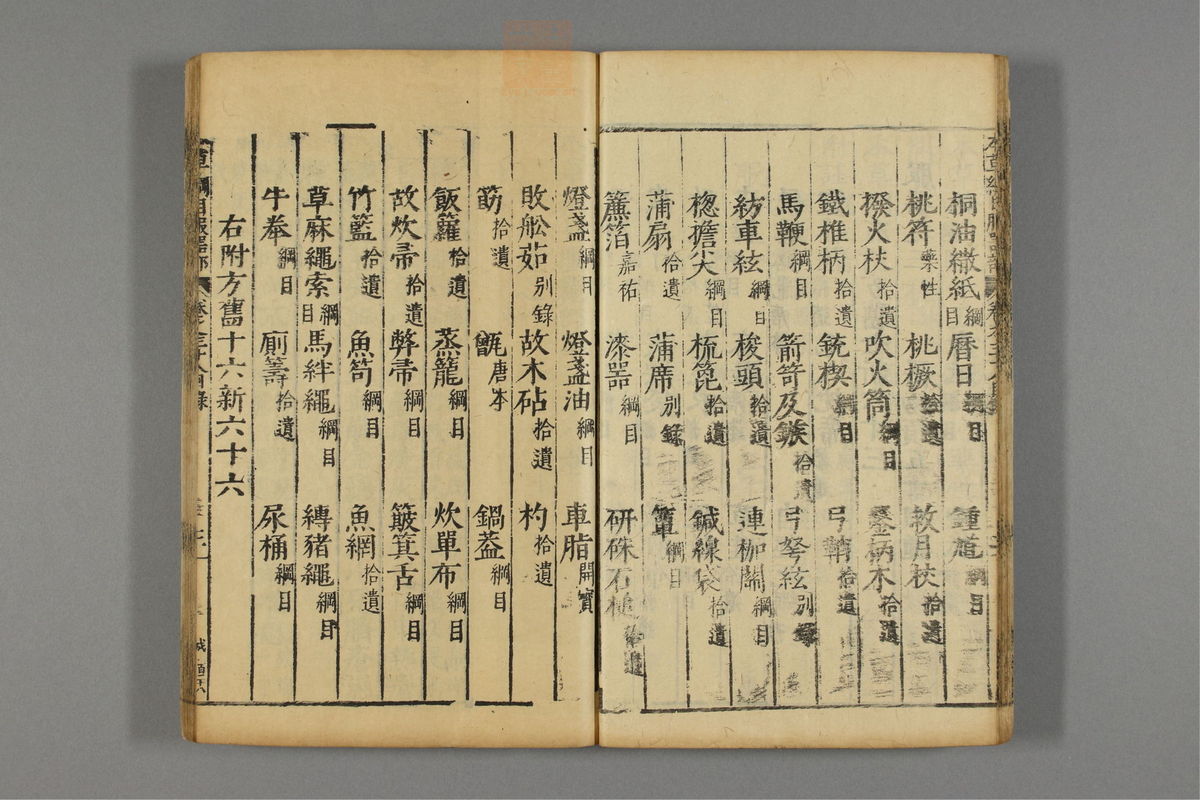 桐油繖紙 綱目 曆日 綱目 鍾馗 綱目
桃符 藥性 桃橛 拾遺 救月杖 拾遺
撥火杖 拾遺 吹火筒 綱目 鑿柄木 拾遺
鐵椎柄 拾遺 銃楔 綱目 弓鞘 拾遺
馬鞭 綱目 箭笴及鏃 拾遺 弓弩絃 別錄
紡車絃 綱目 梭頭 拾遺 連枷關 綱目
楤擔尖 綱目 梳篦 拾遺 鍼線袋 拾遺
蒲扇 拾遺 蒲席 別錄 簟 綱目
簾箔 嘉祐 漆器 綱目 研硃石槌 拾遺
燈盞 綱目 燈盞油 綱目 車脂 開寶
敗船茹 別錄 故木砧 拾遺 杓 拾遺
筯 拾遺 甑 唐本 鍋蓋 綱目
飯籮 拾遺 蒸籠 綱目 炊單布 綱目
故炊帚 拾遺 弊帚 綱目 簸箕舌 綱目
竹籃 拾遺 魚笱 綱目 魚網 拾遺
草麻繩索 綱目 馬絆繩 綱目 縳豬繩 綱目
牛桊 綱目 廁籌 拾遺 尿桶 綱目
右附方舊十六新六十六